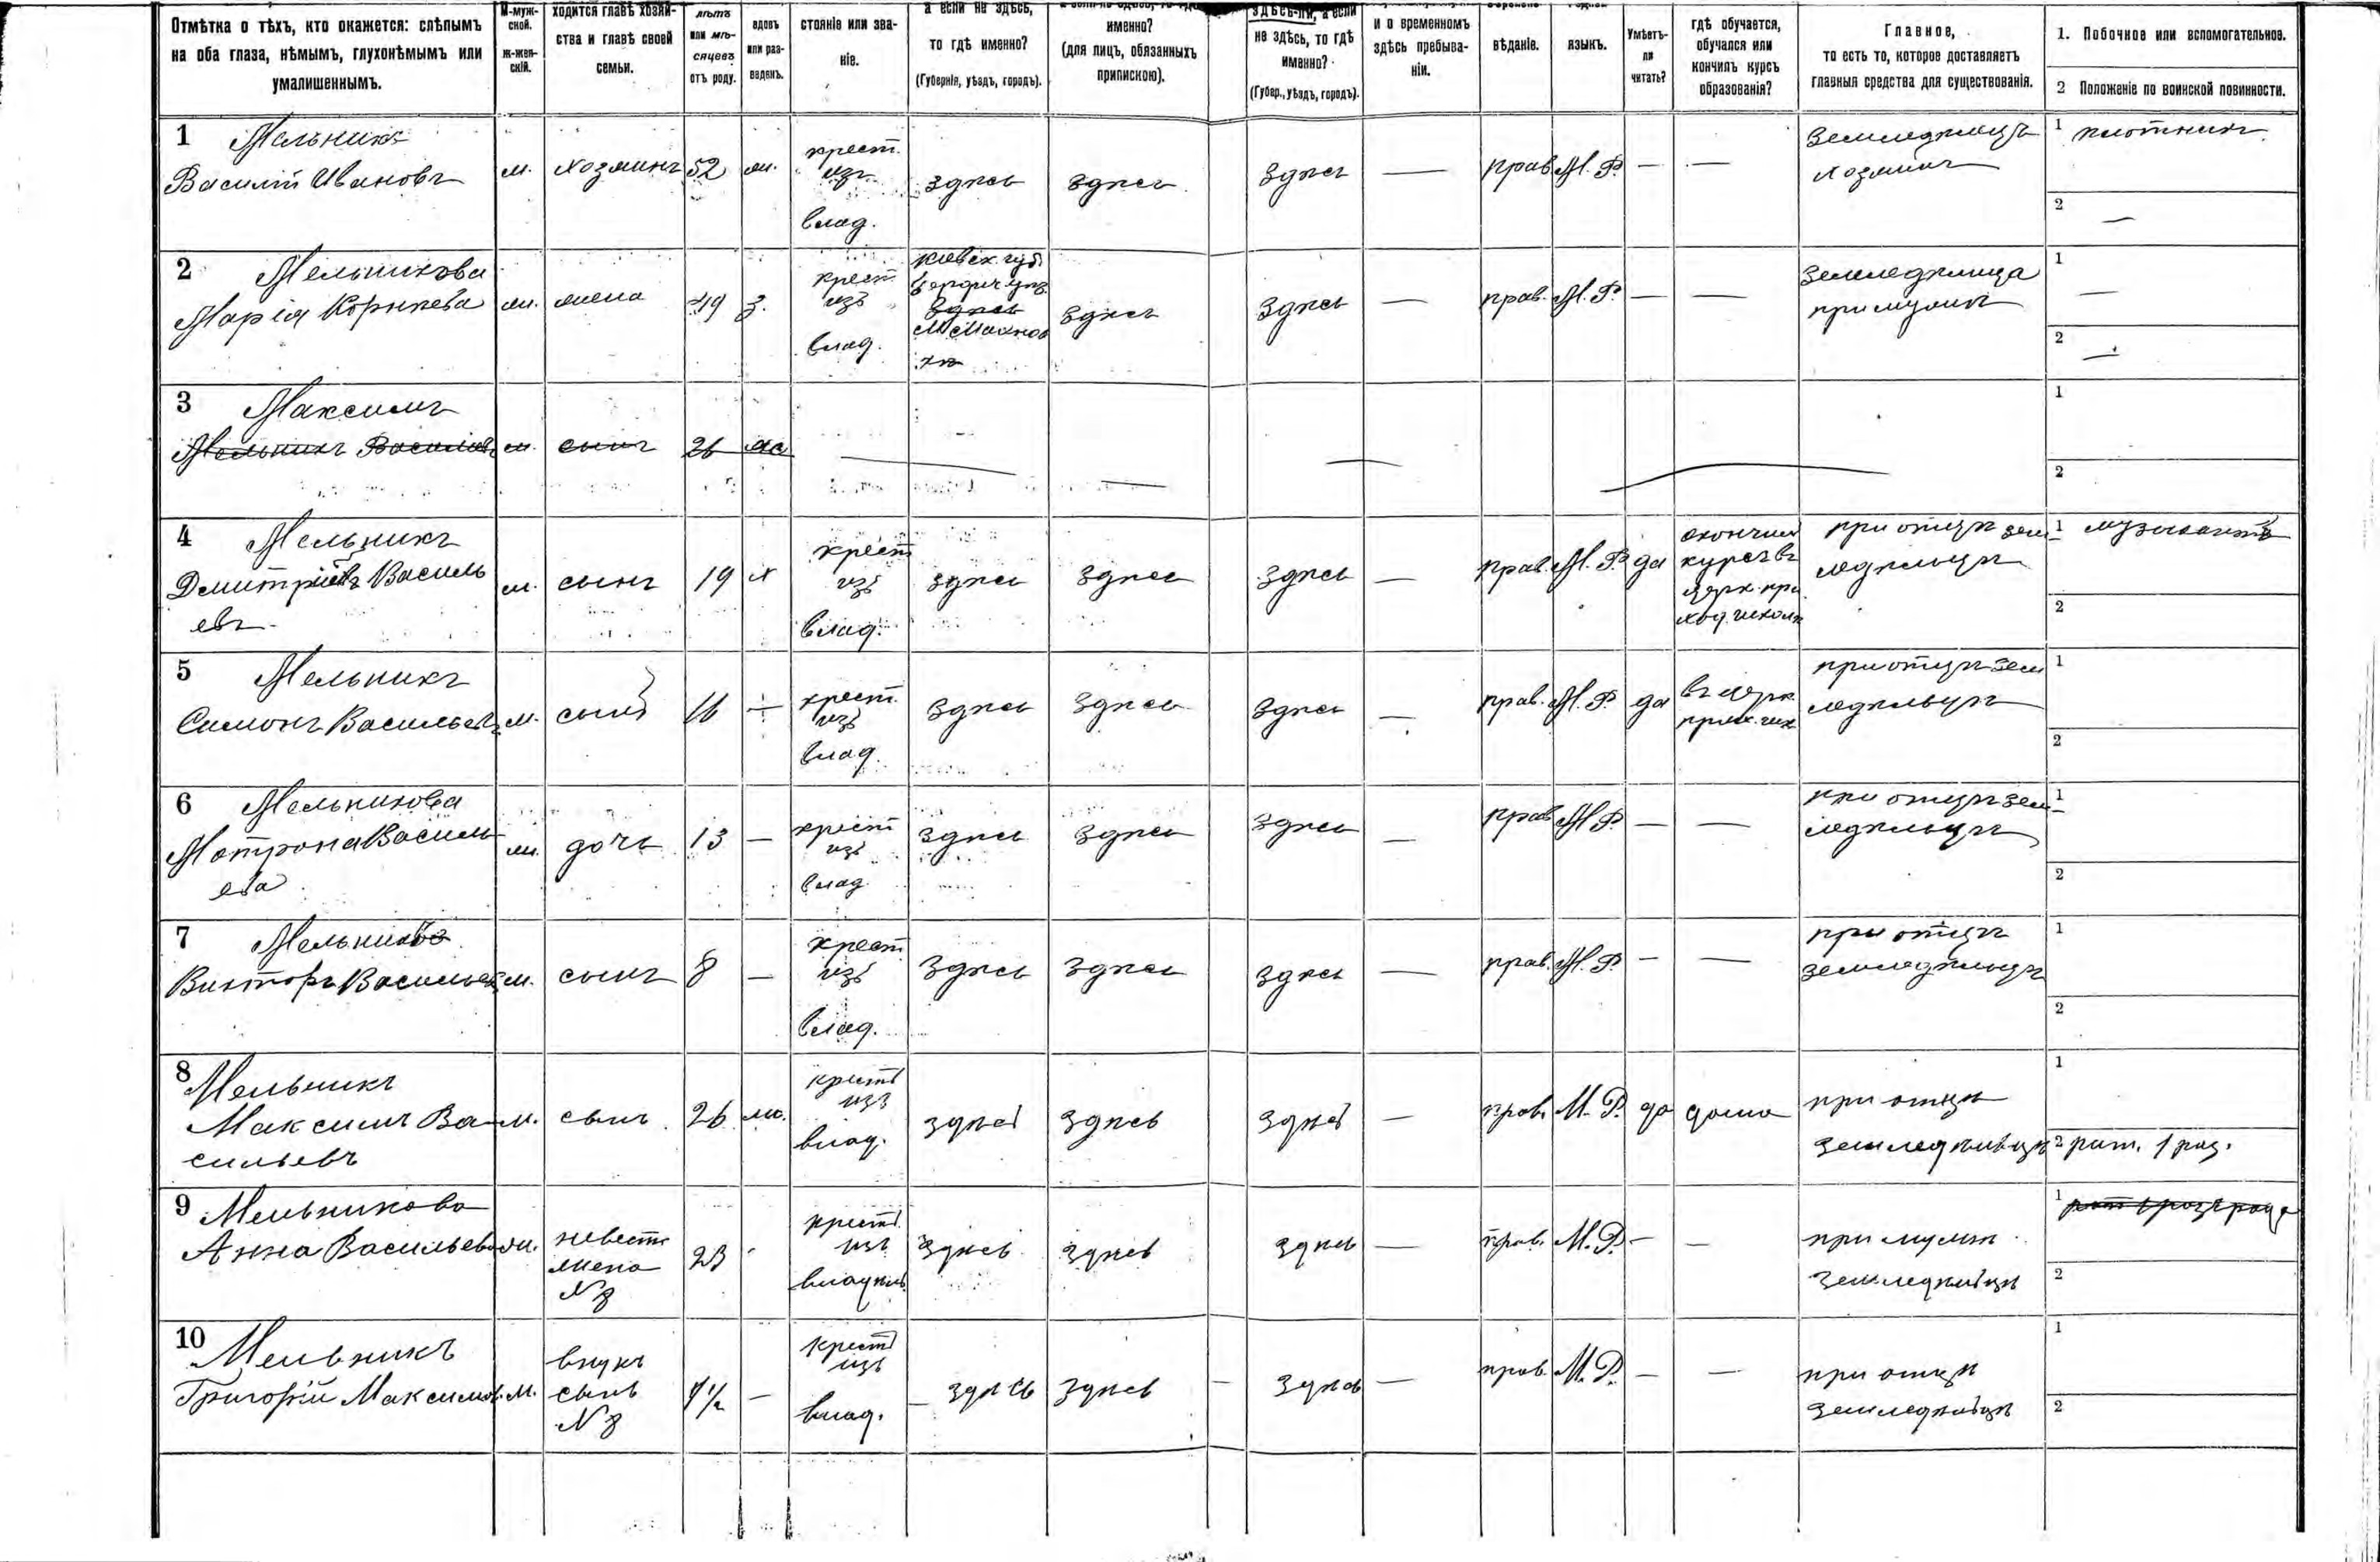 Отмѣтка о тѣхъ, кто окажется: слѣпымъ
на оба глаза, нѣмымъ, глухонѣмымъ или
умалишеннымъ.
М-муж-
ской.
ж-жен-
скій.
ходится главѣ хозяй-
ства и главѣ своей
семьи.
лѣтъ
или мѣ-
сяцевъ
отъ роду.
вдовъ
или раз-
веденъ.
стояніе или зва-
ніе.
а если не здѣсь,
то гдѣ именно?
(Губернія, уѣздъ, городъ).
именно?
(для лицъ, обязанныхъ
припискою).
здѣсь-ли, а если
не здѣсь, то гдѣ
именно?
(Губер., уѣздъ, городъ).
и о временномъ
здѣсь пребыва-
ніи.
вѣданіе.
языкъ.
Умѣетъ-
ли
читать?
гдѣ обучается,
обучался или
кончилъ курсъ
образованія?
Главное,
то есть то, которое доставляетъ
главныя средства для существованія.
1. Побочное или вспомогательное.
2 Положеніе по воинской повинности.
1 Мельникъ
Василій Ивановъ
м. хозяинъ 52 ж.
крест.
изъ
влад.
здѣсь здѣсь здѣсь — прав. М. Р. — —
Земледѣлецъ
хозяинъ
1 плотникъ
2 —
2 Мельникова
Марія Корнѣева
ж. жена 49 з.
крест.
изъ
влад.
Кіевск. губ.
Бердич. уѣз.
здѣсь
М. Махнов
ка
здѣсь здѣсь — прав. М. Р. — —
Земледѣлица
при мужѣ
1 —
2 —
3 Максимъ
Мельникъ Василіев
м. сынъ 26 ж
1
2
4 Мельникъ
Дмитрій Василь
евъ
м. сынъ 19 х
крест
изъ
влад.
здѣсь здѣсь здѣсь — прав. М. Р. да
окончил
курсъ въ
церк. при
ход. школѣ
при отцѣ зем
ледѣльцѣ
1 музыкантъ
2
5 Мельникъ
Симонъ Васильевъ
м. сынъ 16 —
крест.
изъ
влад.
здѣсь здѣсь здѣсь — прав. М. Р. да
въ церк.
прих. шк.
при отцѣ зем
ледѣльцѣ
1
2
6 Мельникова
Мотрона Василь
ева
ж. дочь 13 —
крест
изъ
влад.
здѣсь здѣсь здѣсь — прав. М. Р. — —
при отцѣ зем
ледѣльцѣ
1
2
7 Мельникъ
Викторъ Васильевъ
м. сынъ 8 —
крест.
изъ
влад.
здѣсь здѣсь здѣсь — прав. М. Р. — —
при отцѣ
земледѣльцѣ
1
2
8 Мельникъ
Максимъ Ва
сильевъ
м. сынъ 26 ж.
крест
изъ
влад.
здѣсь здѣсь здѣсь — прав. М. Р. да дома
при отцѣ
земледѣльцѣ
1
2 рат. 1 раз.
9 Мельникова
Анна Васильева
ж.
невест.
жена
№ 8
23
крест.
изъ
владѣль.
здѣсь здѣсь здѣсь — прав. М. Р. — —
при мужѣ
земледѣльцѣ
1
2
10 Мельникъ
Григорій Максимов.
м.
внукъ
сынъ
№ 8
1½ —
крест
изъ
влад.
здѣсь здѣсь — здѣсь — прав. М. Р. — —
при отцѣ
земледѣльцѣ
1
2